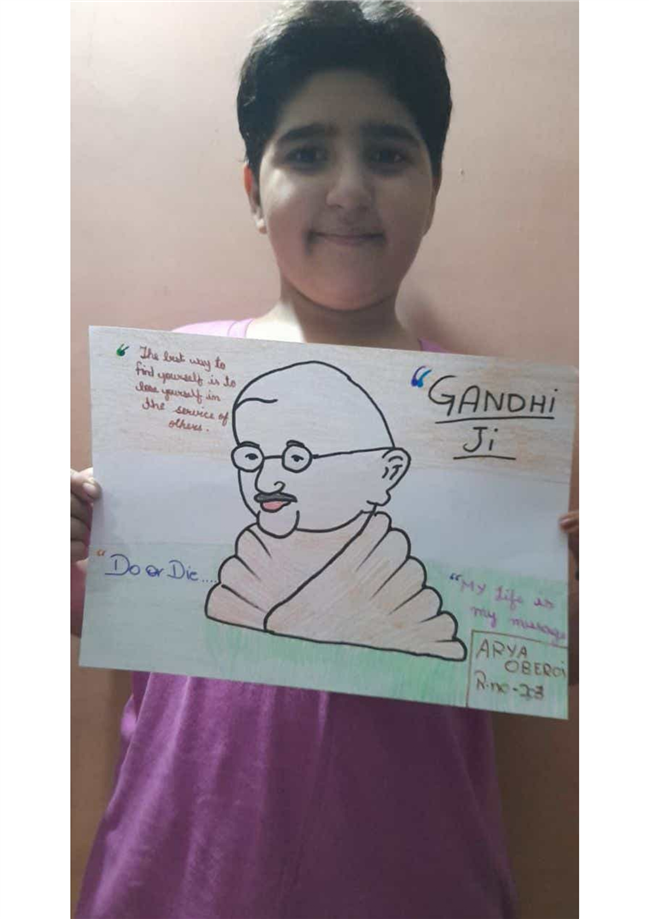 " The best way to
find yourself is to
lose yourself in
the service of
others.
"GANDHi
Ji
"Do or Die....
"My life is
my message
ARYA
OBEROi
R.no-